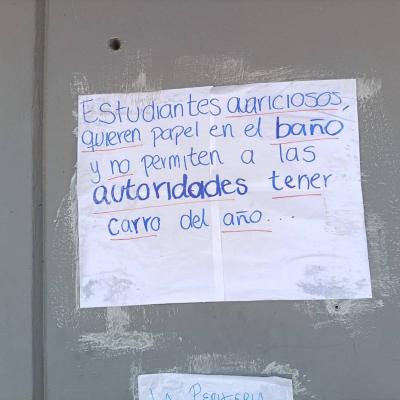 Estudiantes avariciosos,
quieren papel en el baño
y no permiten a las
autoridades tener
carro del año...
LA PERIFERIA